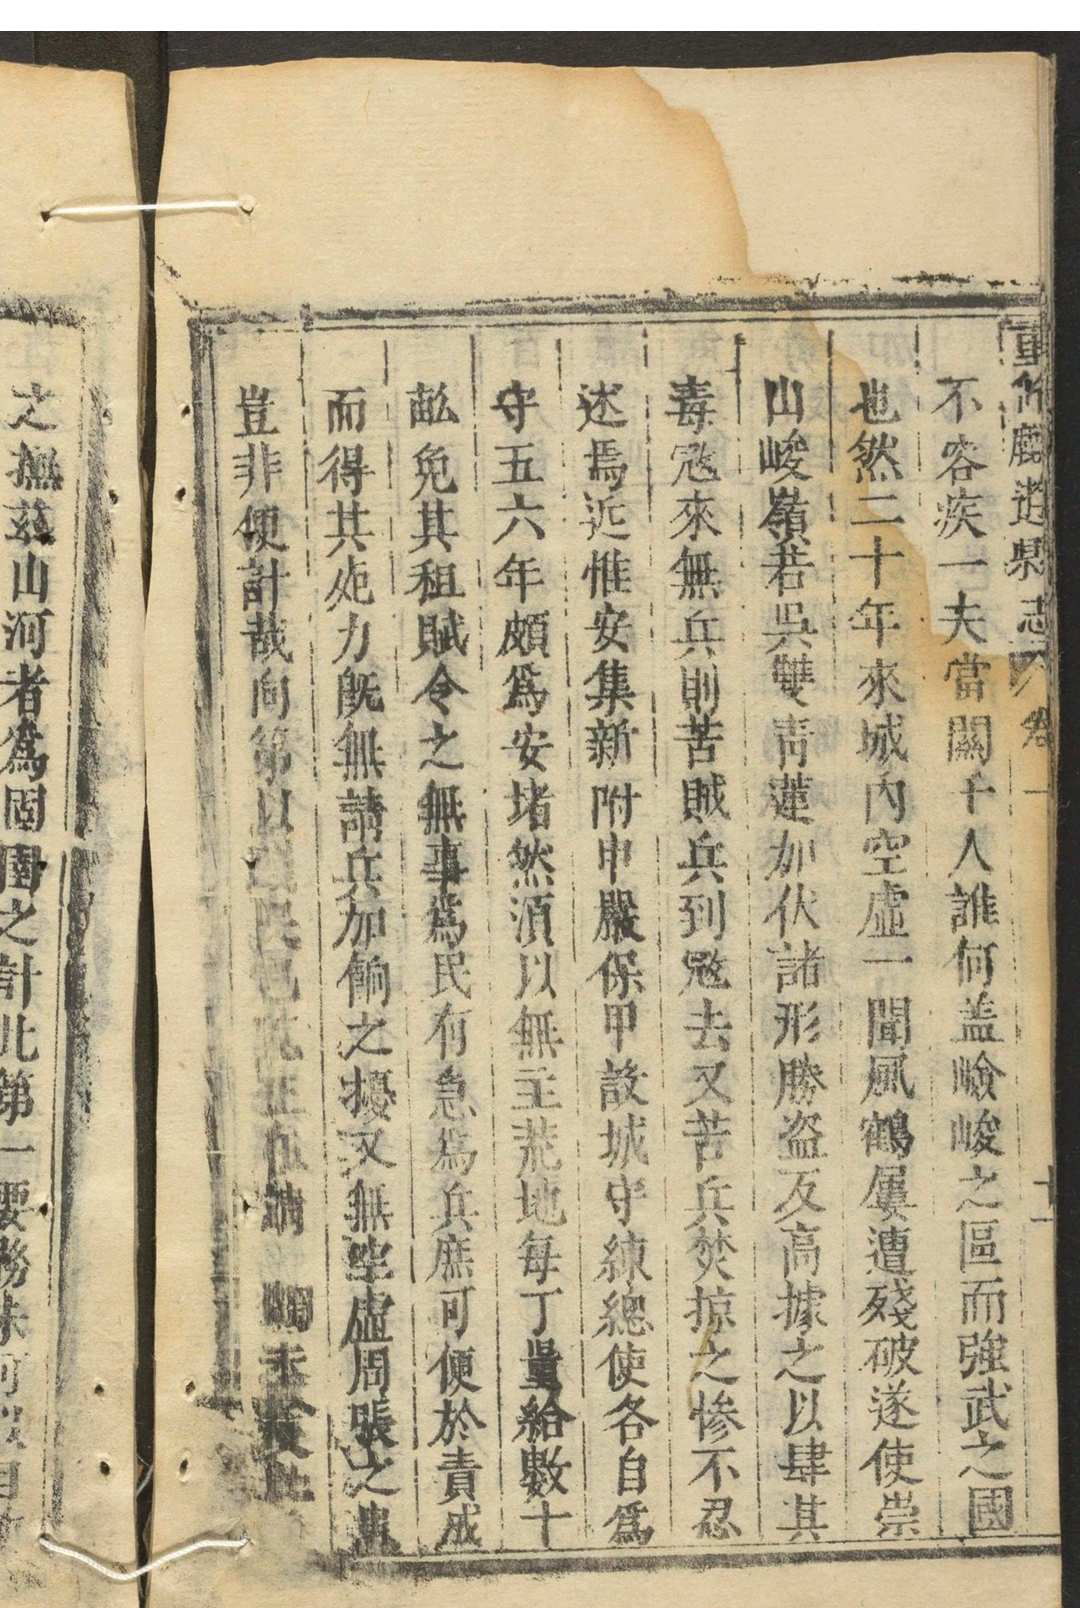 重修鹿邑縣志 卷一 十一
不容疾一夫當關千人誰何盖嶮峻之區而強武之國
也然二十年來城內空虛一聞風鶴屢遭殘破遂使崇
山峻嶺若吳雙青蓮加伏諸形勝盜反高據之以肆其
毒寇來無兵則苦賊兵到寇去又苦兵焚掠之慘不忍
述焉近惟安集新附申嚴保甲設城守練總使各自為
守五六年頗為安堵然須以無主荒地每丁量給數十
畝免其租賦令之無事為民有急為兵庶可便於責成
而得其死力既無請兵加餉之擾又無空虛周張之患
豈非便計哉向第以
之撫茲山河者為固圉之計此第一要務未可以